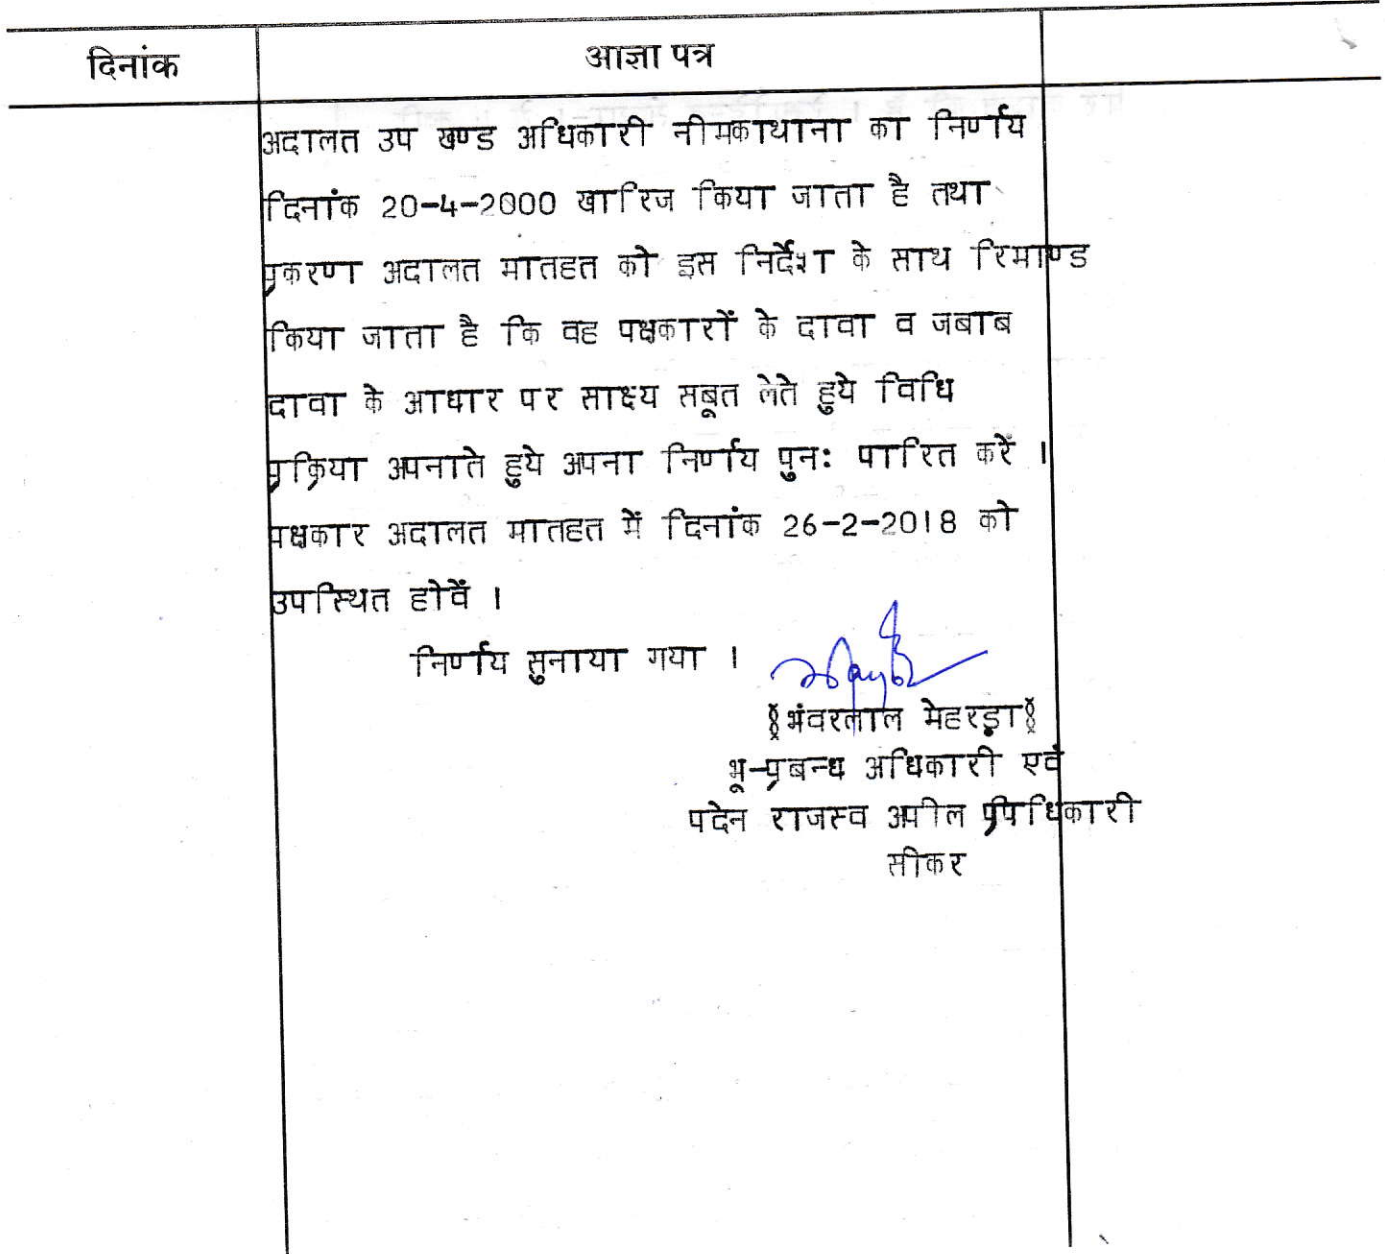 दिनांक
आज्ञा पत्र
अदालत उप खण्ड अधिकारी नीमकाथाना का निर्णय
दिनांक 20-4-2000 खारिज किया जाता है तथा
प्रकरण अदालत मातहत को इस निर्देश के साथ रिमाण्ड
किया जाता है कि वह पक्षकारों के दावा व जबाब
दावा के आधार पर साक्ष्य सबूत लेते हुये विधि
प्रक्रिया अपनाते हुये अपना निर्णय पुनः पारित करें ।
पक्षकार अदालत मातहत में दिनांक 26-2-2018 को
उपस्थित होवें ।
निर्णय सुनाया गया ।
भंवरलाल मेहरड़ा
भू-प्रबन्ध अधिकारी एवं
पदेन राजस्व अपील
सीकर